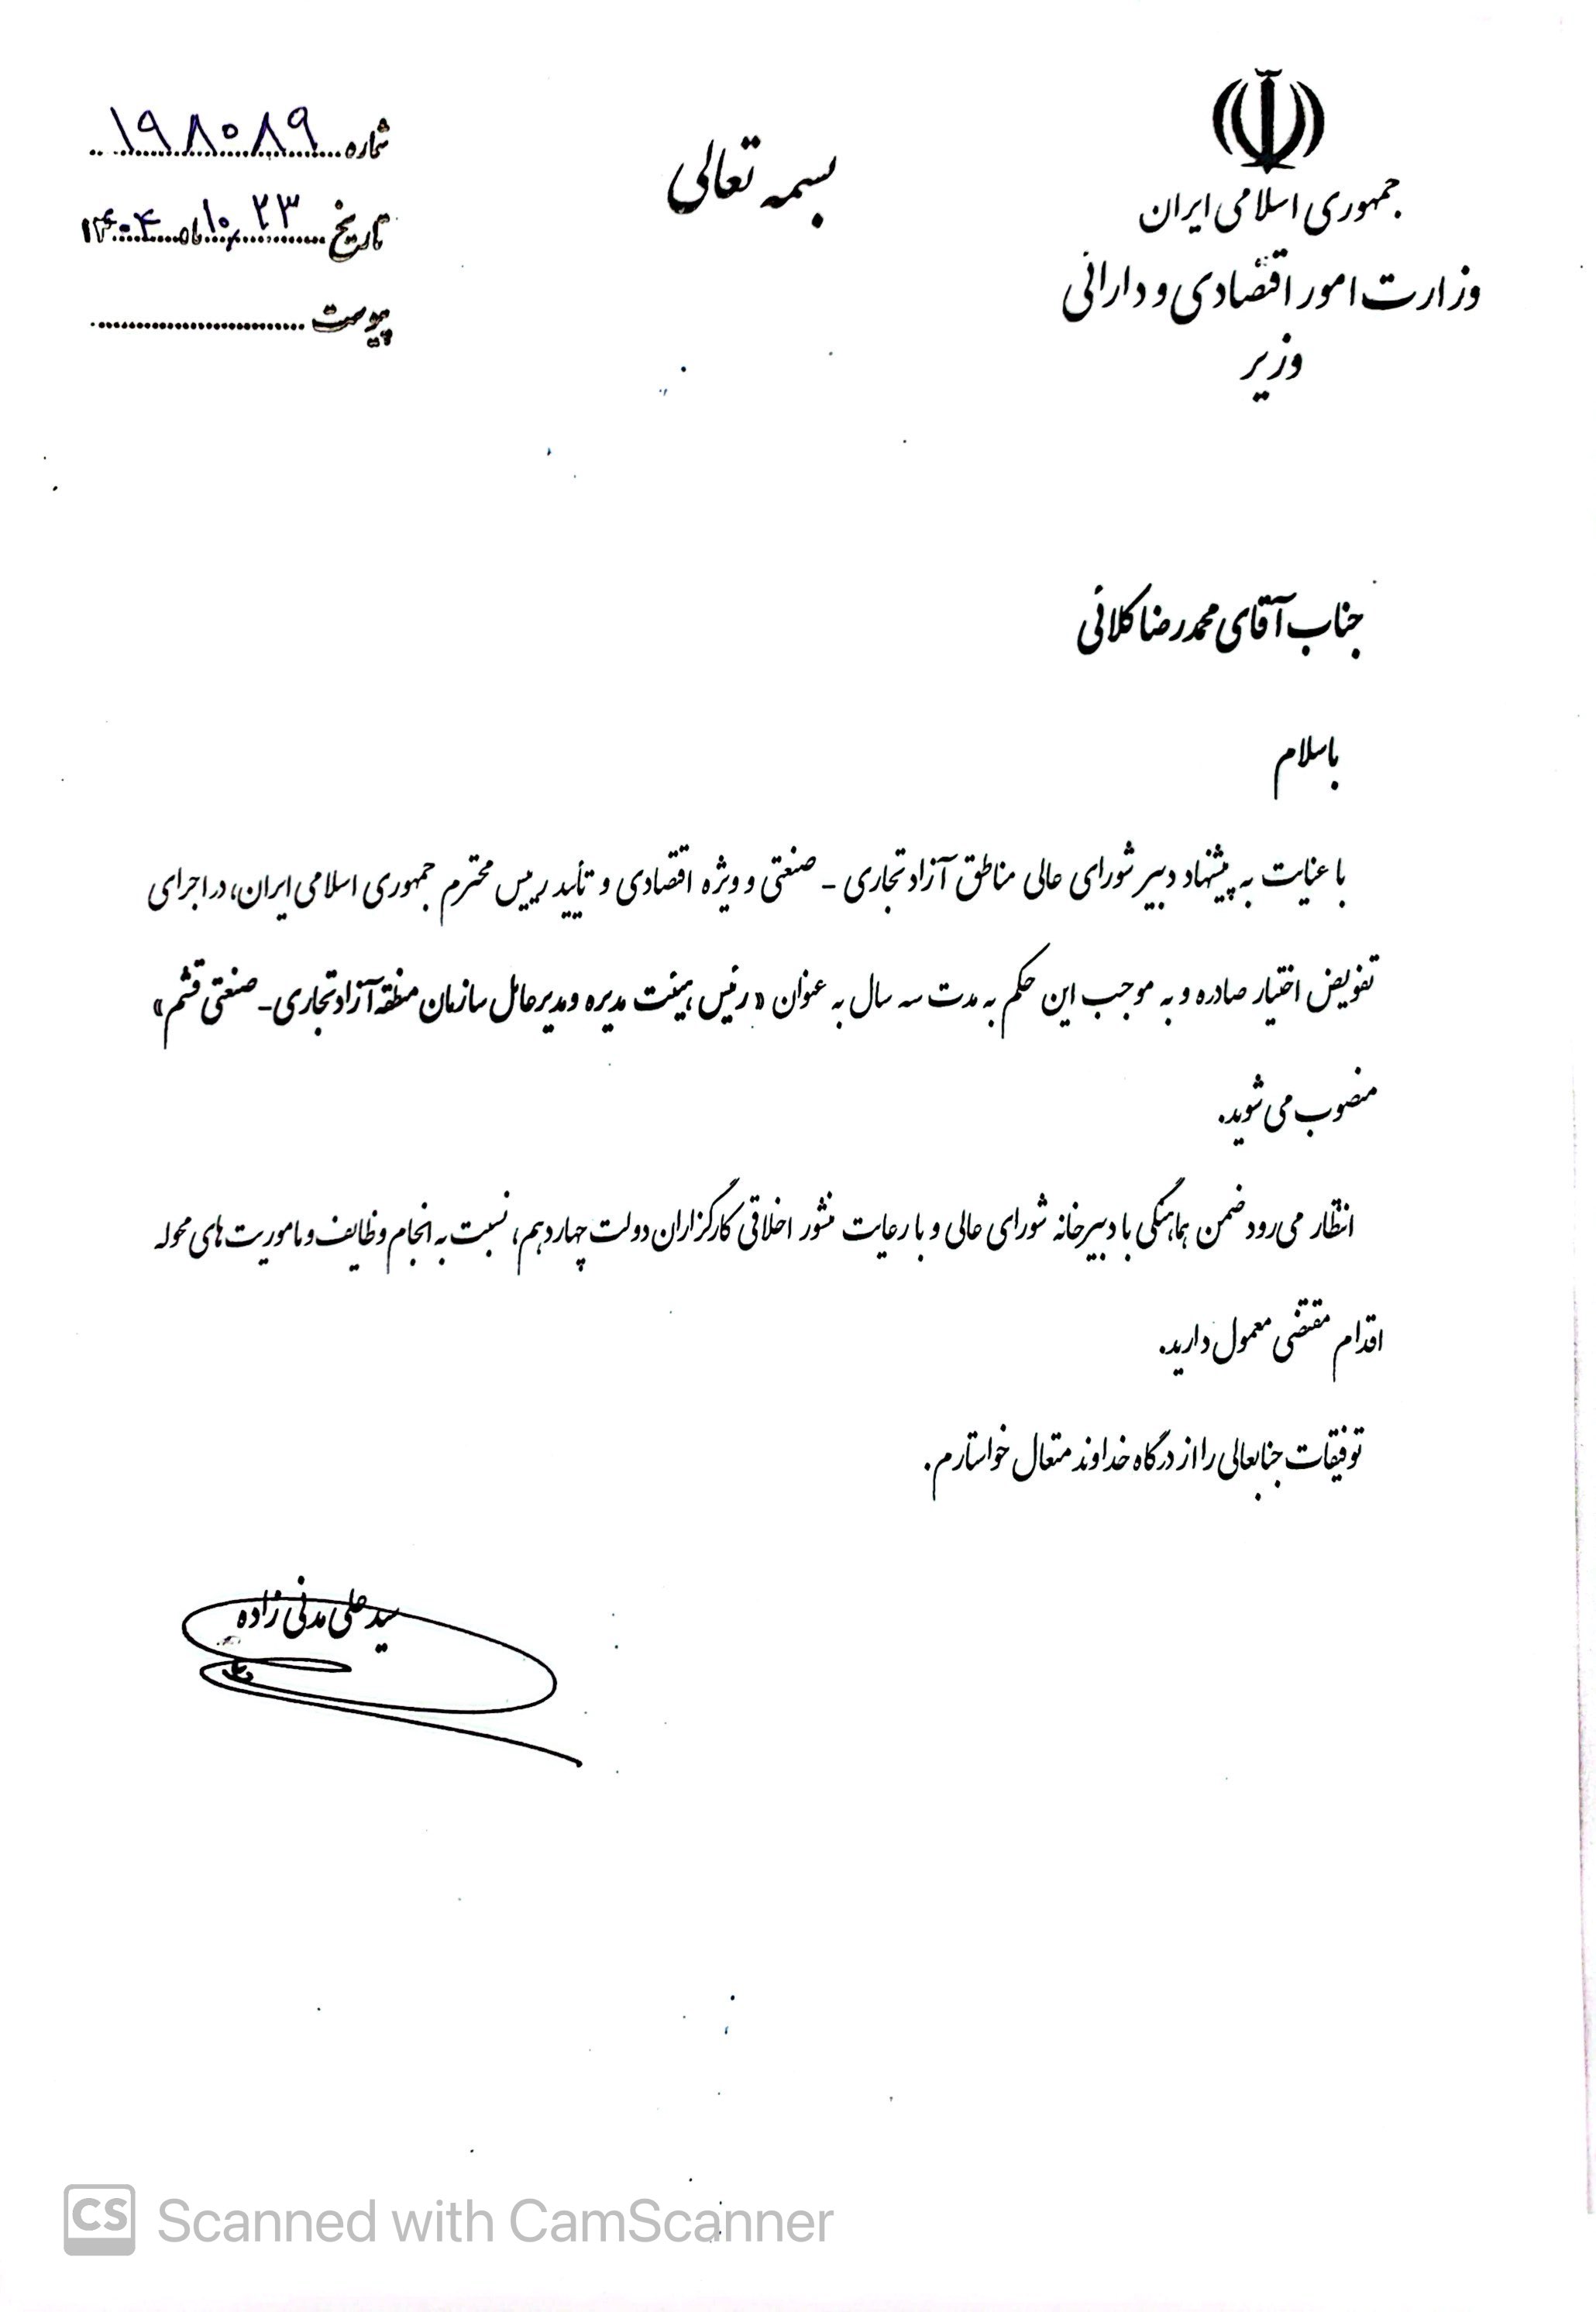 جمهوری اسلامی ایران
وزارت امور اقتصادی و دارائی
وزیر
بسمه تعالی
شماره ۱۹۸۰۸۹
تاریخ ۲۳ / ۱۰ ماه ۱۴۰۴
پیوست
جناب آقای محمدرضا کلائی
با سلام
با عنایت به پیشنهاد دبیر شورای عالی مناطق آزاد تجاری - صنعتی و ویژه اقتصادی و تأیید رییس محترم جمهوری اسلامی ایران، در اجرای
تفویض اختیار صادره و به موجب این حکم به مدت سه سال به عنوان «رئیس هیئت مدیره و مدیرعامل سازمان منطقه آزاد تجاری - صنعتی قشم»
منصوب می‌شوید.
انتظار می‌رود ضمن هماهنگی با دبیرخانه شورای عالی و با رعایت منشور اخلاقی کارگزاران دولت چهاردهم، نسبت به انجام وظایف و ماموریت‌های محوله
اقدام مقتضی معمول دارید.
توفیقات جنابعالی را از درگاه خداوند متعال خواستارم.
سید علی مدنی زاده
CS Scanned with CamScanner